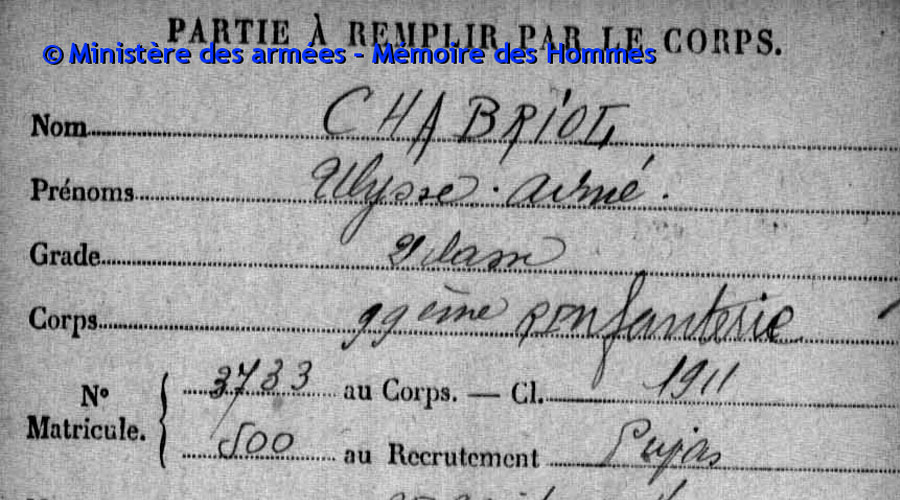 PARTIE À REMPLIR PAR LE CORPS.
© Ministère des armées - Mémoire des Hommes
Nom CHABRIOT
Prénoms Ulysse. Aimé.
Grade 2 classe
Corps 99ème Infanterie
3733 au Corps. — Cl. 1911
No Matricule.
500 au Recrutement